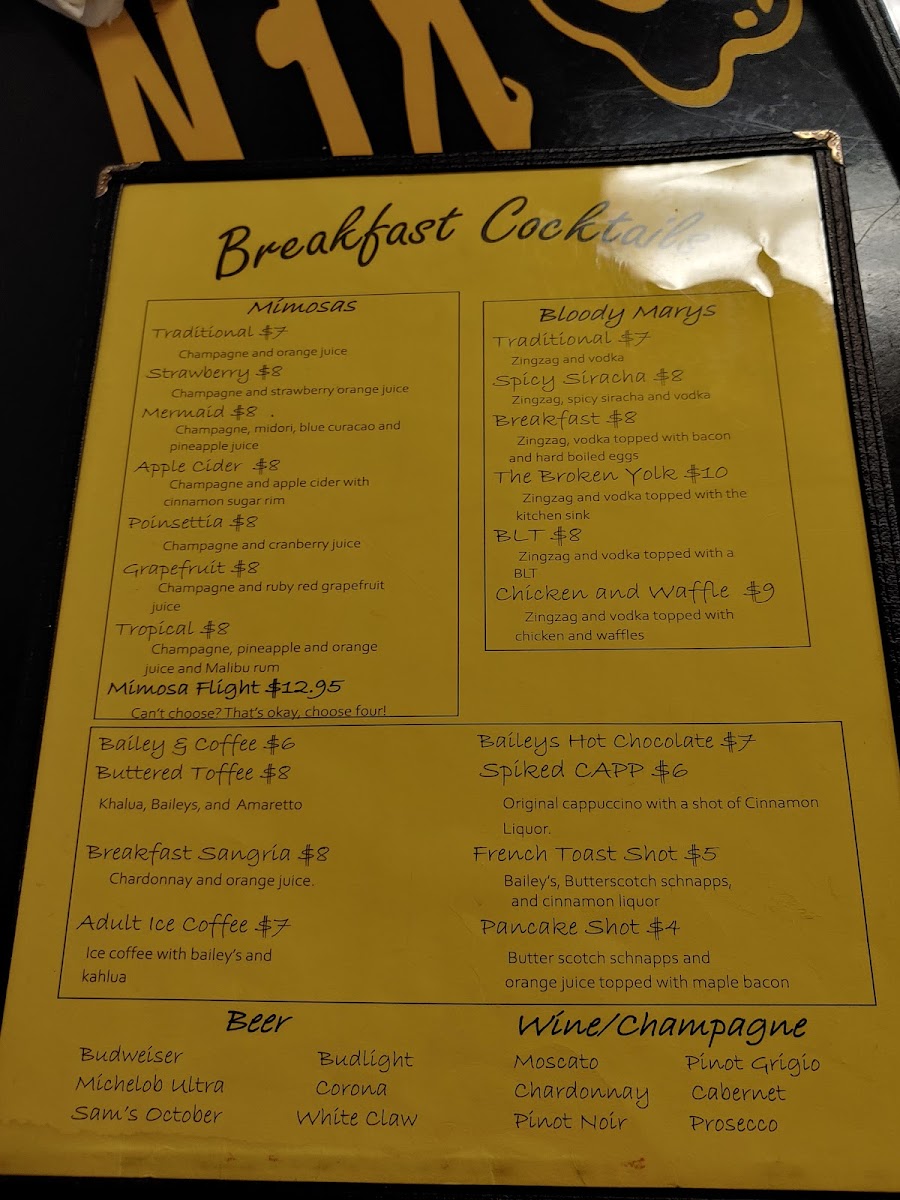 Breakfast Cocktails
Mimosas
Traditional $7
Champagne and orange juice
Strawberry $8
Champagne and strawberry orange juice
Mermaid $8 .
Champagne, midori, blue curacao and
pineapple juice
Apple Cider $8
Champagne and apple cider with
cinnamon sugar rim
Poinsettia $8
Champagne and cranberry juice
Grapefruit $8
Champagne and ruby red grapefruit
juice
Tropical $8
Champagne, pineapple and orange
juice and Malibu rum
Mimosa Flight $12.95
Can't choose? That's okay, choose four!
Bloody Marys
Traditional $7
Zingzag and vodka
Spicy Siracha $8
Zingzag, spicy siracha and vodka
Breakfast $8
Zingzag, vodka topped with bacon
and hard boiled eggs
The Broken Yolk $10
Zingzag and vodka topped with the
kitchen sink
BLT $8
Zingzag and vodka topped with a
BLT
Chicken and Waffle $9
Zingzag and vodka topped with
chicken and waffles
Bailey & Coffee $6
Buttered Toffee $8
Khalua, Baileys, and Amaretto
Breakfast Sangria $8
Chardonnay and orange juice.
Adult Ice Coffee $7
Ice coffee with bailey's and
kahlua
Baileys Hot Chocolate $7
Spiked CAPP $6
Original cappuccino with a shot of Cinnamon
Liquor.
French Toast Shot $5
Bailey's, Butterscotch schnapps,
and cinnamon liquor
Pancake Shot $4
Butter scotch schnapps and
orange juice topped with maple bacon
Beer
Budweiser Budlight
Michelob Ultra Corona
Sam's October White Claw
Wine/Champagne
Moscato Pinot Grigio
Chardonnay Cabernet
Pinot Noir Prosecco